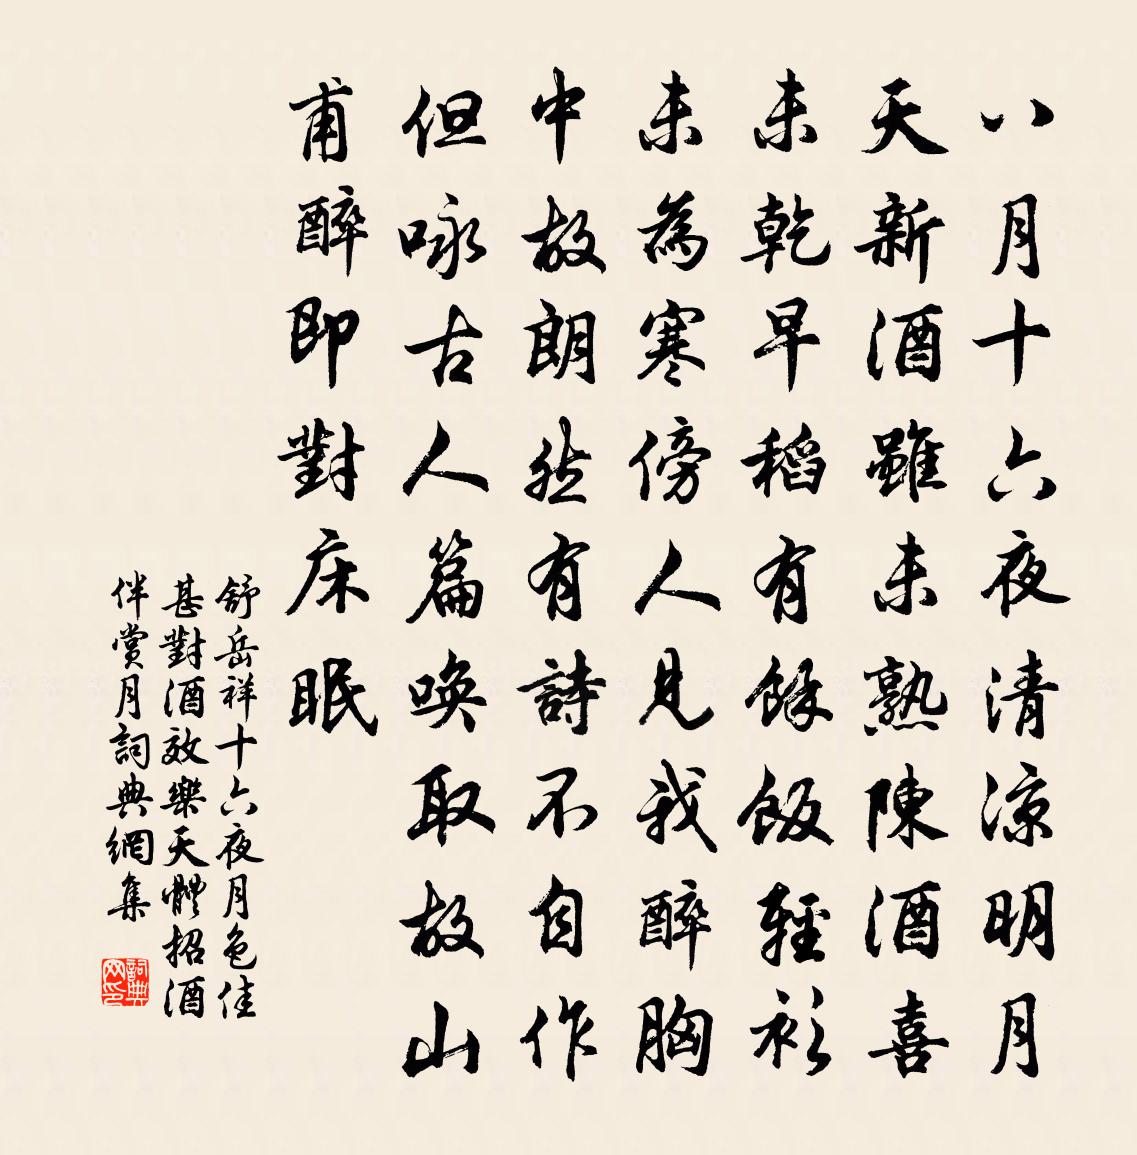 八月十六夜清涼明月
天新酒雖未熟陳酒喜
未乾早稻有餘飯輕衫
未為寒傍人見我醉胸
中故朗然有詩不自作
但咏古人篇喚取故山
甫醉即對床眠
舒岳祥十六夜月色佳
甚對酒效樂天體招酒
伴賞月詞典網集
詞典
网印